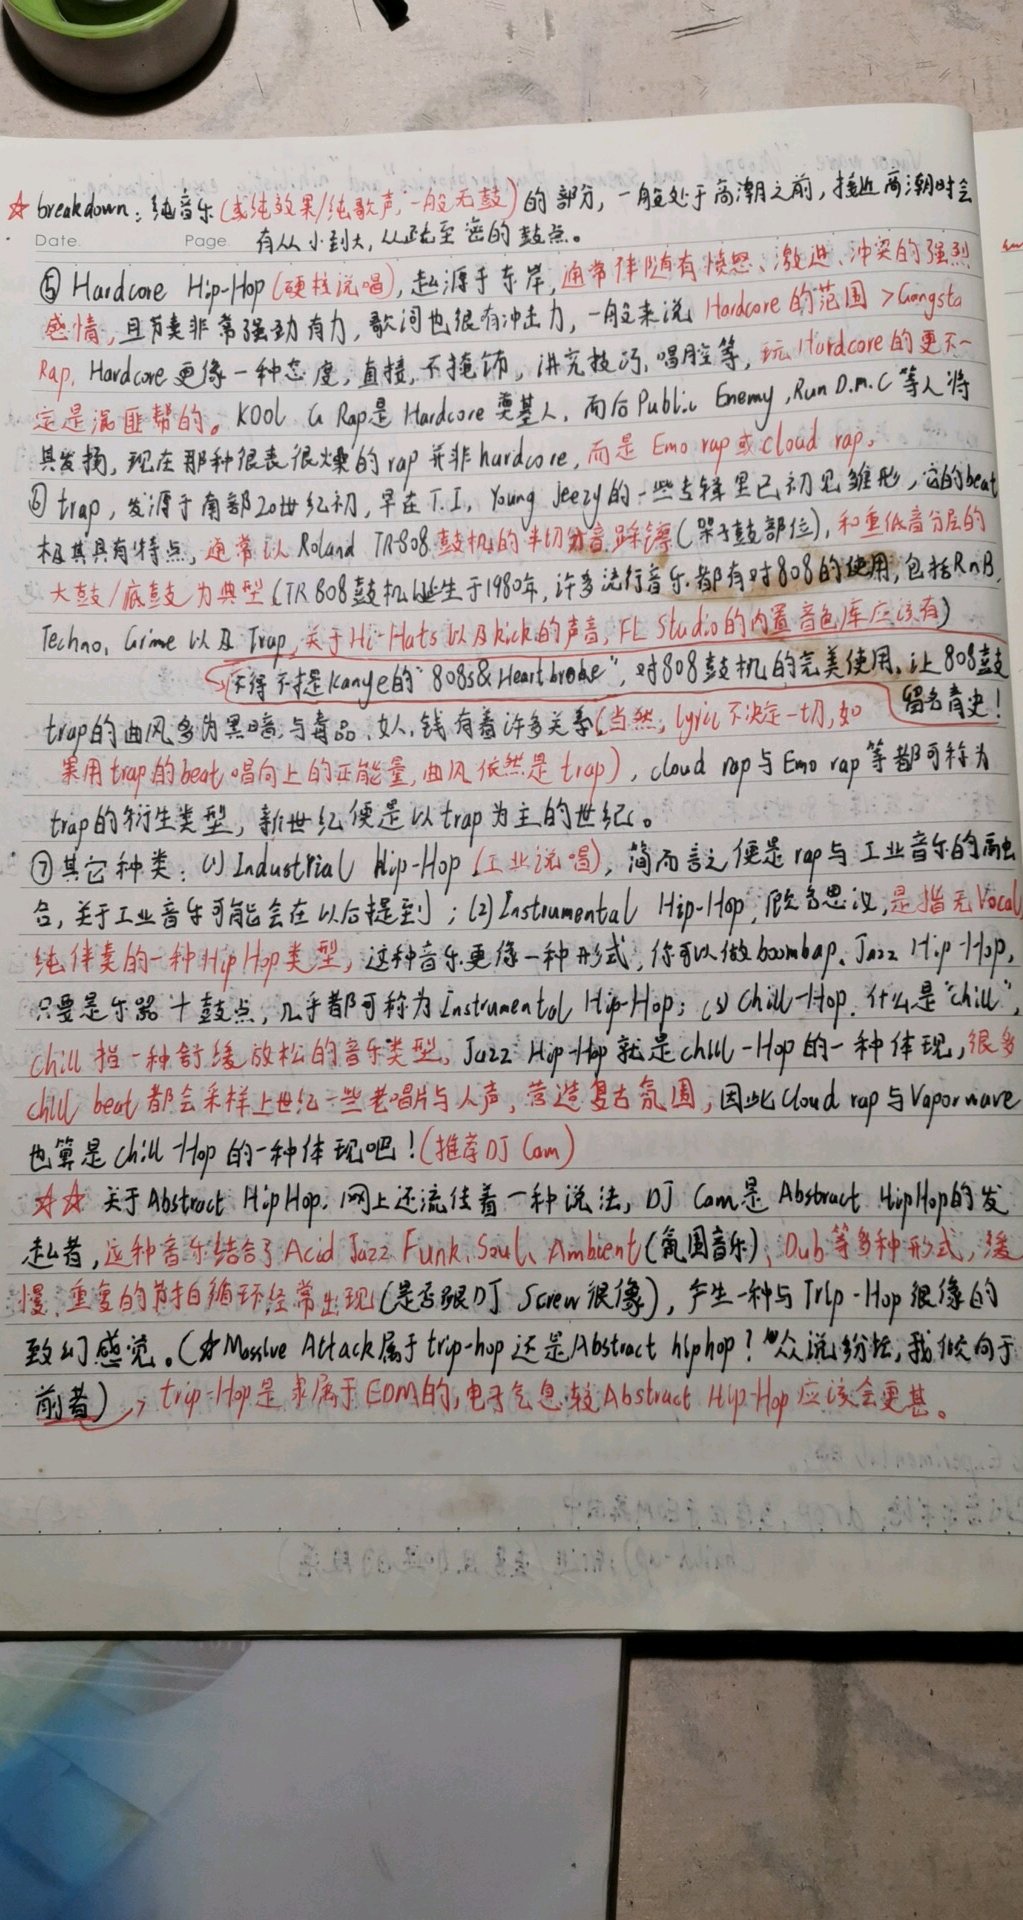 ☆ breakdown: 纯音乐(或纯效果/纯歌声,一般无鼓)的部分,一般处于高潮之前,接近高潮时会
Date. Page. 有从小到大,从疏至密的鼓点。
⑤ Hardcore Hip-Hop(硬核说唱),起源于东岸,通常伴随有愤怒、激进、冲突的强烈
感情,且节奏非常强劲有力,歌词也很有冲击力,一般来说 Hardcore 的范围 >Gangsta
Rap, Hardcore 更像一种态度,直接,不掩饰,讲究技巧,唱腔等,玩Hardcore的更不一
定是混匪帮的。KOOL G Rap是 Hardcore 奠基人,而后Public Enemy, Run D.M.C 等人将
其发扬,现在那种很表很燥的rap 并非hardcore,而是 Emo rap或 cloud rap。
⑥ trap,发源于南部20世纪初,早在 T.I, Young Jeezy的一些专辑里已初见雏形,它的beat
极其具有特点,通常以 Roland TR-808 鼓机的半切分音踩镲(架子鼓部位),和重低音分层的
大鼓/底鼓为典型(TR 808鼓机诞生于1980年,许多流行音乐都有对808的使用,包括RnB,
Techno, Grime 以及 Trap,关于 Hi-Hats 以及kick的声音,FL Studio的内置音色库应该有)
不得不提Kanye的“808s& Heartbroke”,对808鼓机的完美使用,让808鼓
留名青史!
trap的曲风多为黑暗,与毒品、女人、钱有着许多关系(当然,lyric 不决定一切,如
果用trap的beat唱向上的正能量,曲风依然是trap),cloud rap与Emo rap等都可称为
trap的衍生类型,新世纪便是以trap为主的世纪。
⑦其它种类:(1)Industrial Hip-Hop(工业说唱),简而言之便是rap与工业音乐的融
合,关于工业音乐可能会在以后提到;(2)Instrumental Hip-Hop,顾名思议,是指无Vocal
纯伴奏的一种HipHop类型,这种音乐更像一种形式,你可以做boombap、Jazz Hip-Hop,
只要是乐器+鼓点,几乎都可称为Instrumental Hip-Hop;(3)Chill-Hop,什么是“chill”,
chill指一种舒缓放松的音乐类型,Jazz Hip-Hop就是chill-Hop的一种体现,很多
chill beat都会采样上世纪一些老唱片与人声,营造复古氛围,因此Cloud rap与Vaporwave
也算是chill-Hop的一种体现吧!(推荐DJ Cam)
☆☆ 关于Abstract HipHop,网上还流传着一种说法,DJ Cam是 Abstract HipHop的发
起者,这种音乐结合了Acid Jazz、Funk、Soul、Ambient(氛围音乐)、Dub等多种形式,缓
慢、重复的节拍循环经常出现(是否跟DJ Screw很像),产生一种与Trip-Hop很像的
致幻感觉。(☆Massive Attack属于trip-hop还是Abstract hiphop?众说纷纭,我倾向于
前者)→trip-Hop是隶属于EDM的,电子气息较Abstract Hip-Hop应该会更甚。